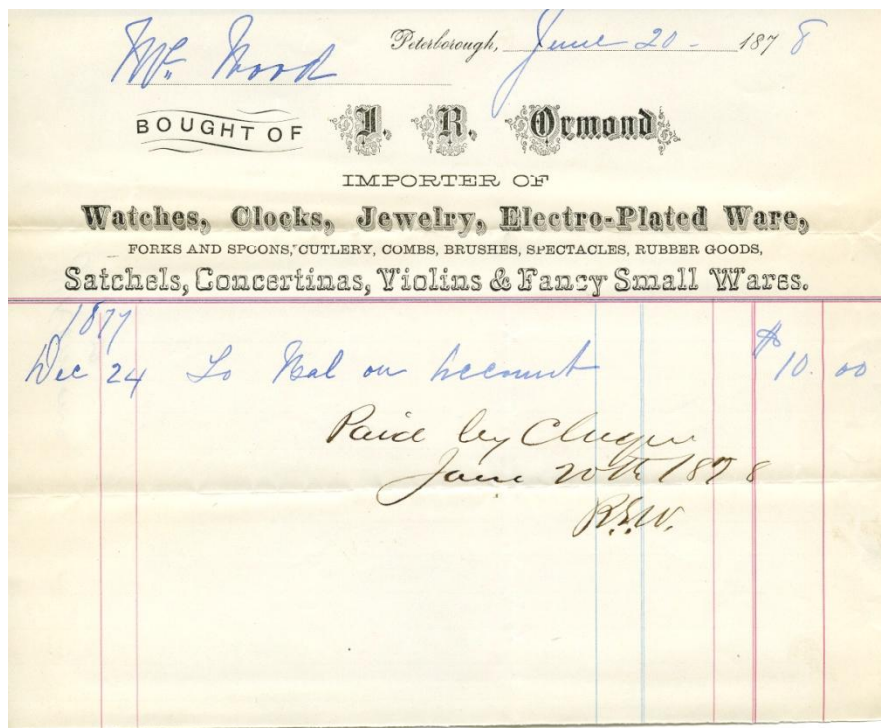 Peterborough, June 20 - 1878
Mr. Wood
BOUGHT OF J. R. Ormond
IMPORTER OF
Watches, Clocks, Jewelry, Electro-Plated Ware,
FORKS AND SPOONS, CUTLERY, COMBS, BRUSHES, SPECTACLES, RUBBER GOODS,
Satchels, Concertinas, Violins & Fancy Small Wares.
1877
Dec 24 To Bal on Account $10.00
Paid by
June 20th 1878